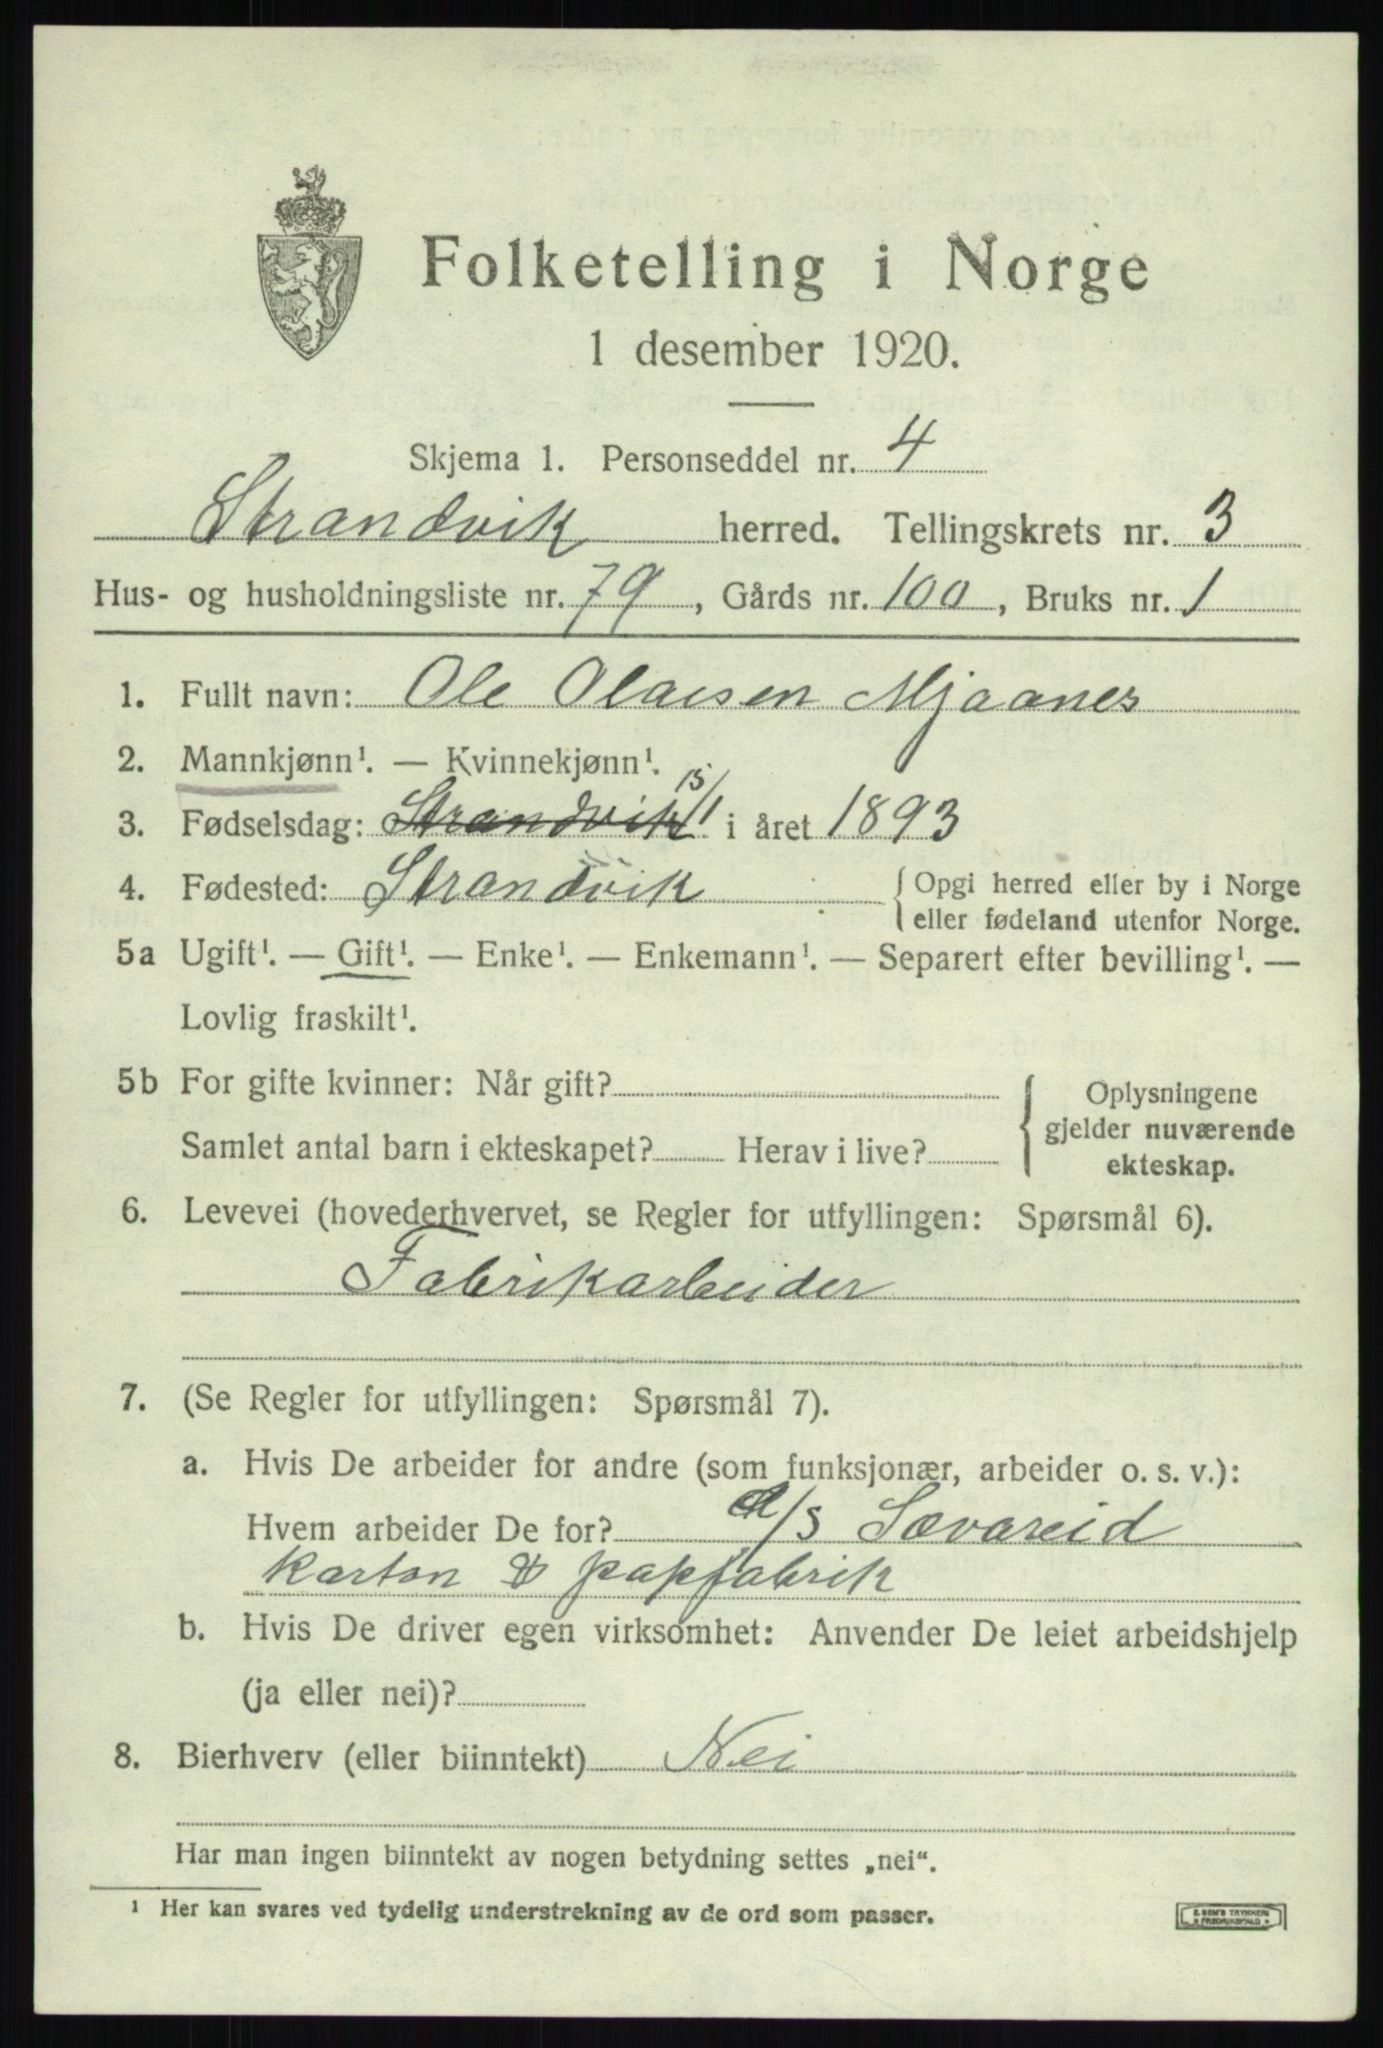 Folketelling i Norge
1 desember 1920.
Skjema 1. Personseddel nr. 4
Strandvik herred. Tellingskrets nr. 3
Hus- og husholdningsliste nr. 79, Gårds nr. 100, Bruks nr. 1
1. Fullt navn: Ole Olaisen Mjaanes
2. Mannkjønn¹. — Kvinnekjønn¹.
3. Fødselsdag: Strandvik 15/1 i året 1893
4. Fødested: Strandvik {Opgi herred eller by i Norge
eller fødeland utenfor Norge.
5a Ugift¹. — Gift¹. — Enke¹. — Enkemann¹. — Separert efter bevilling¹. —
Lovlig fraskilt¹.
5b For gifte kvinner: Når gift?
Samlet antal barn i ekteskapet? Herav i live?
{Oplysningene
gjelder nuværende
ekteskap.
6. Levevei (hovederhvervet, se Regler for utfyllingen: Spørsmål 6).
Fabrikarbeider
7. (Se Regler for utfyllingen: Spørsmål 7).
a. Hvis De arbeider for andre (som funksjonær, arbeider o. s. v.):
Hvem arbeider De for? A/S Sævareid
karton & papfabrik
b. Hvis De driver egen virksomhet: Anvender De leiet arbeidshjelp
(ja eller nei)?
8. Bierhverv (eller biinntekt) Nei
Har man ingen biinntekt av nogen betydning settes „nei“.
¹ Her kan svares ved tydelig understrekning av de ord som passer.